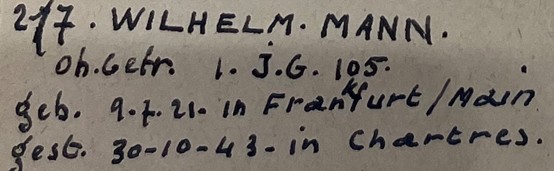 217. WILHELM. MANN.
Ob.Gefr. 1. J.G. 105.
geb. 9.7.21. in Frankfurt/Main
gest. 30-10-43- in Chartres.